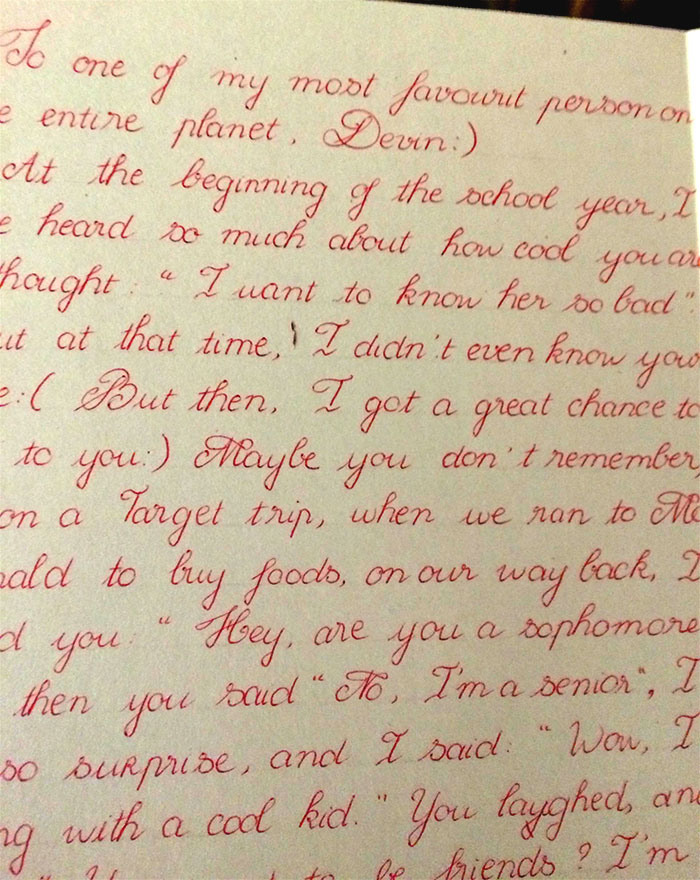 To one of my most favourit person on
e entire planet, Devin:)
At the beginning of the school year, I
e heard so much about how cool you are
thought: " I want to know her so bad".
ut at that time, I didn't even know your
e:( But then, I got a great chance to
to you:) Maybe you don't remember,
on a Target trip, when we ran to Mc
nald to buy foods, on our way back, I
d you: " Hey, are you a sophomore
then you said " No, I'm a senior", I
so surprise, and I said: " Wow, I
ng with a cool kid." You layghed, and
to be friends? I'm